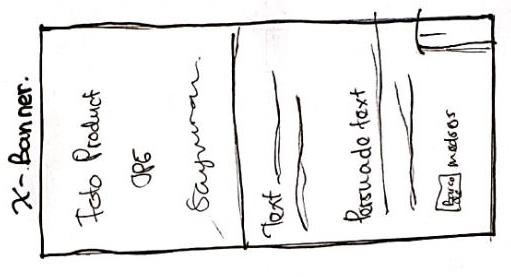 X-Banner.
Foto Product
Sayuran.
Text
Persuade text
medsos